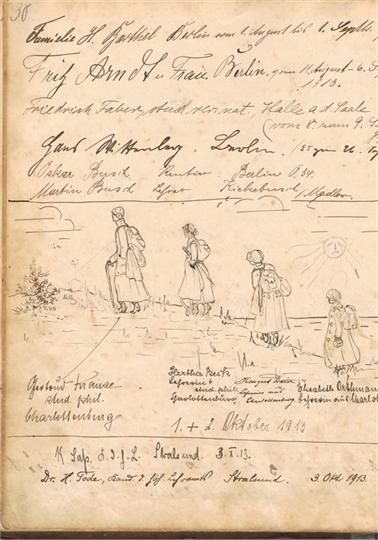 30
Familie H. Barthel Berlin vom 1. August bis 1. Septb.
Fritz Arndt u Frau. Berlin. vom 11. August - 6. S
1913.
Friedrich Faber, stud. rer. nat. Halle a. d. Saale
(vom 8. zum 9. S
Hans Wittenberg. Berlin.
Oskar Busch Rentier Berlin O. 34.
Martin Busch Lehrer Kiekebusch / Madlow.
Gertrud Krause
stud. phil.
Charlottenburg
Hertha
Lehrerin
stud. phil.
Charlottenburg
Margaret
Lehrerin aus
Charlottenburg
Elisabeth Orthmann
Lehrerin aus Charlot
1. + 2. Oktober 1913
Stralsund. 3. X. 13.
Dr. H. Tode, Kand. d. höh. Lehramts Stralsund. 3. Okt 1913.